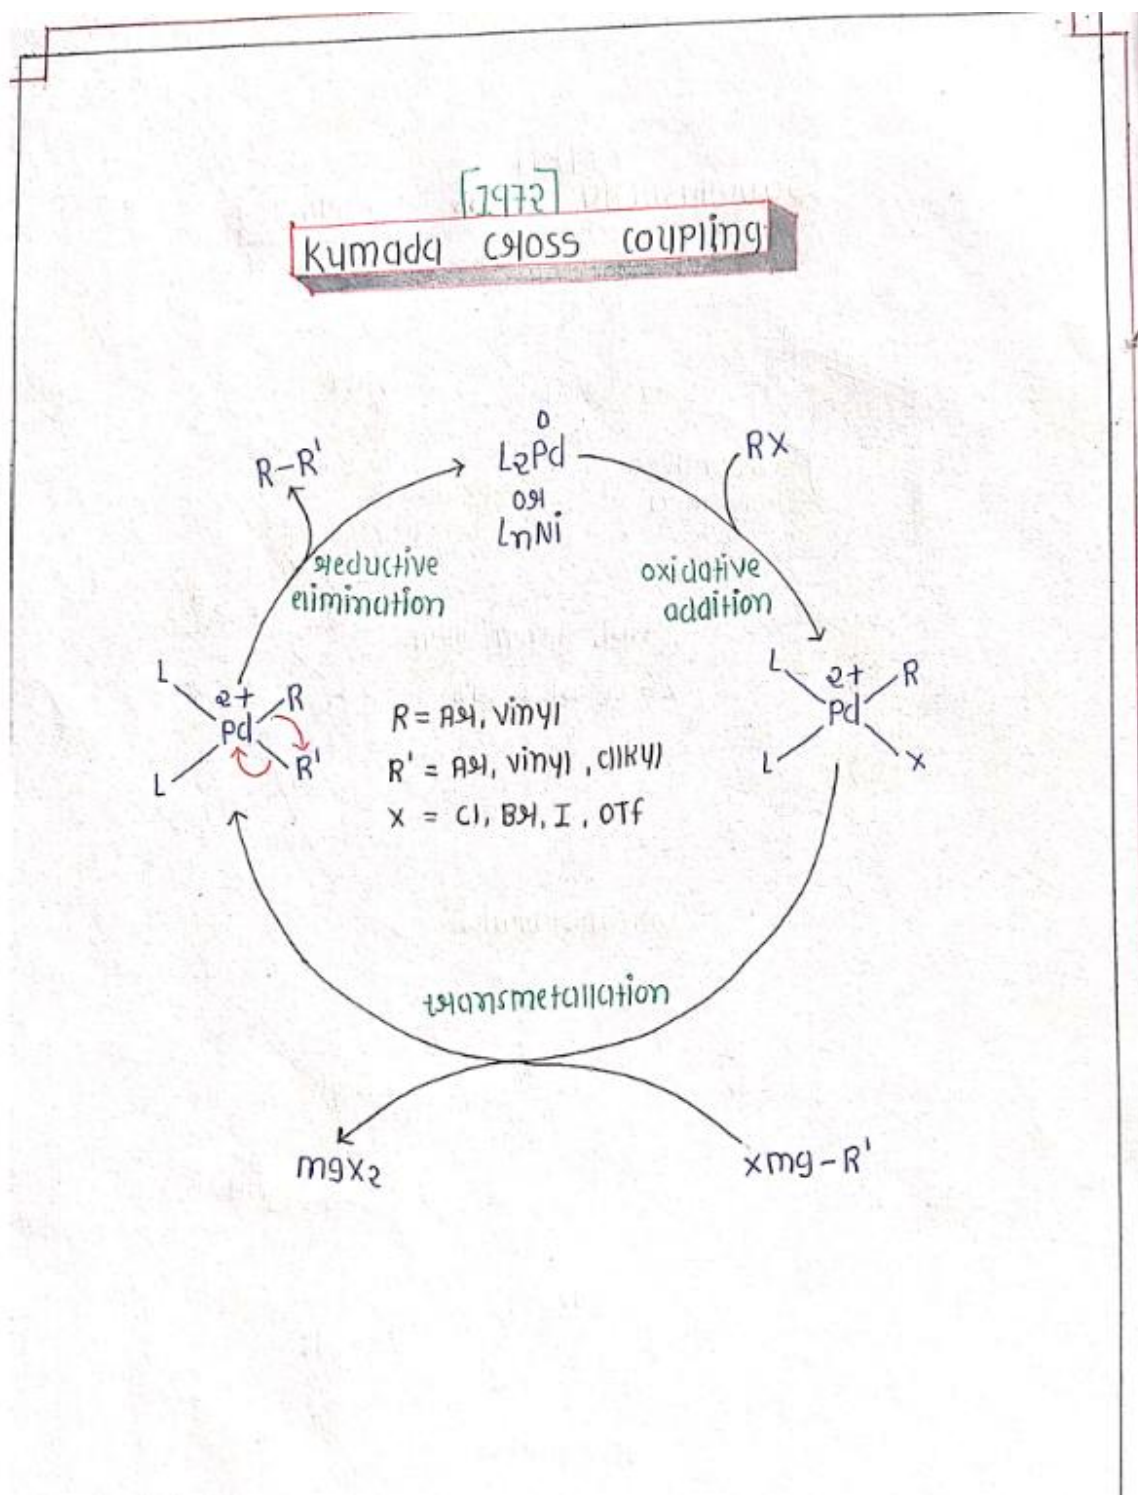 [1972]
Kumada cross coupling
0
L2Pd
or
LnNi
RX
R-R'
reductive
elimination
oxidative
addition
L
2+
Pd
R
R'
L
L
2+
Pd
R
X
L
R = Ar, vinyl
R' = Ar, vinyl, alkyl
X = Cl, Br, I, OTf
transmetallation
mgX2
Xmg-R'